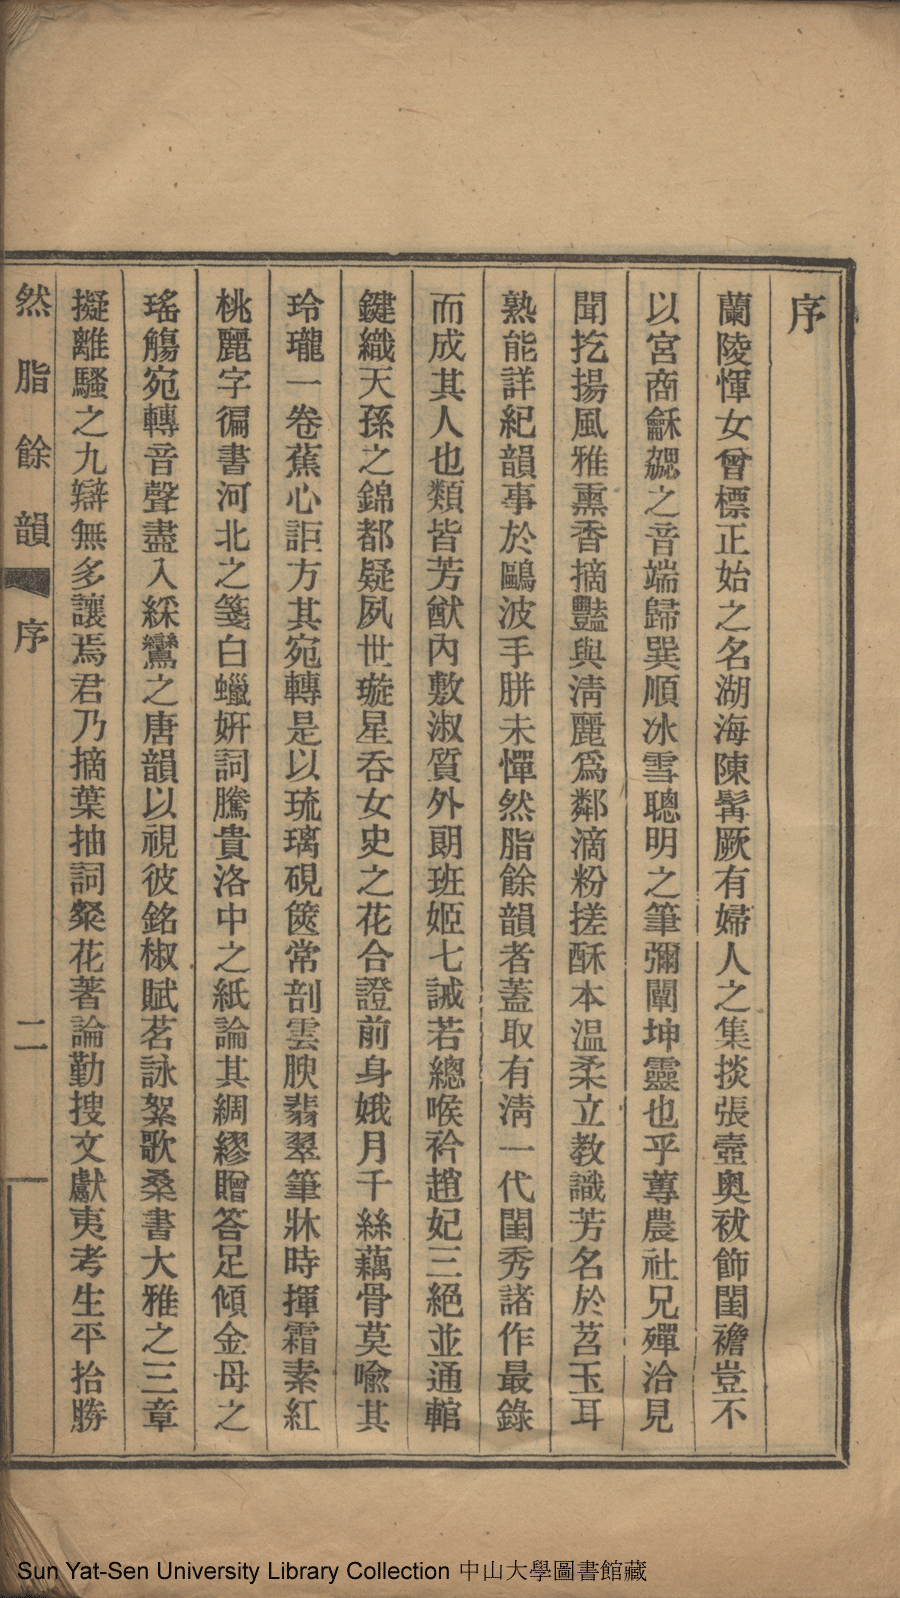 序
蘭陵惲女曾標正始之名湖海陳髯厥有婦人之集掞張壼奧袚飾閨襜豈不
以宮商龢勰之音端歸巽順冰雪聰明之筆彌闡坤靈也乎蓴農社兄殫洽見
聞扢揚風雅熏香摘豔與淸麗爲鄰滴粉搓酥本温柔立教識芳名於苕玉耳
熟能詳紀韻事於鷗波手胼未憚然脂餘韻者蓋取有淸一代閨秀諸作最錄
而成其人也類皆芳猷內敷淑質外朗班姬七誡若總喉衿趙妃三絕並通輨
鍵織天孫之錦都疑夙世璇星吞女史之花合證前身娥月千絲藕骨莫喩其
玲瓏一卷蕉心詎方其宛轉是以琉璃硯篋常剖雲腴翡翠筆牀時揮霜素紅
桃麗字徧書河北之箋白蠟妍詞騰貴洛中之紙論其綢繆贈答足傾金母之
瑤觴宛轉音聲盡入綵鸞之唐韻以視彼銘椒賦茗詠絮歌桑書大雅之三章
擬離騷之九辯無多讓焉君乃摘葉抽詞粲花著論勤搜文獻夷考生平拾勝
然脂餘韻
序
二
Sun Yat-Sen University Library Collection 中山大學圖書館藏